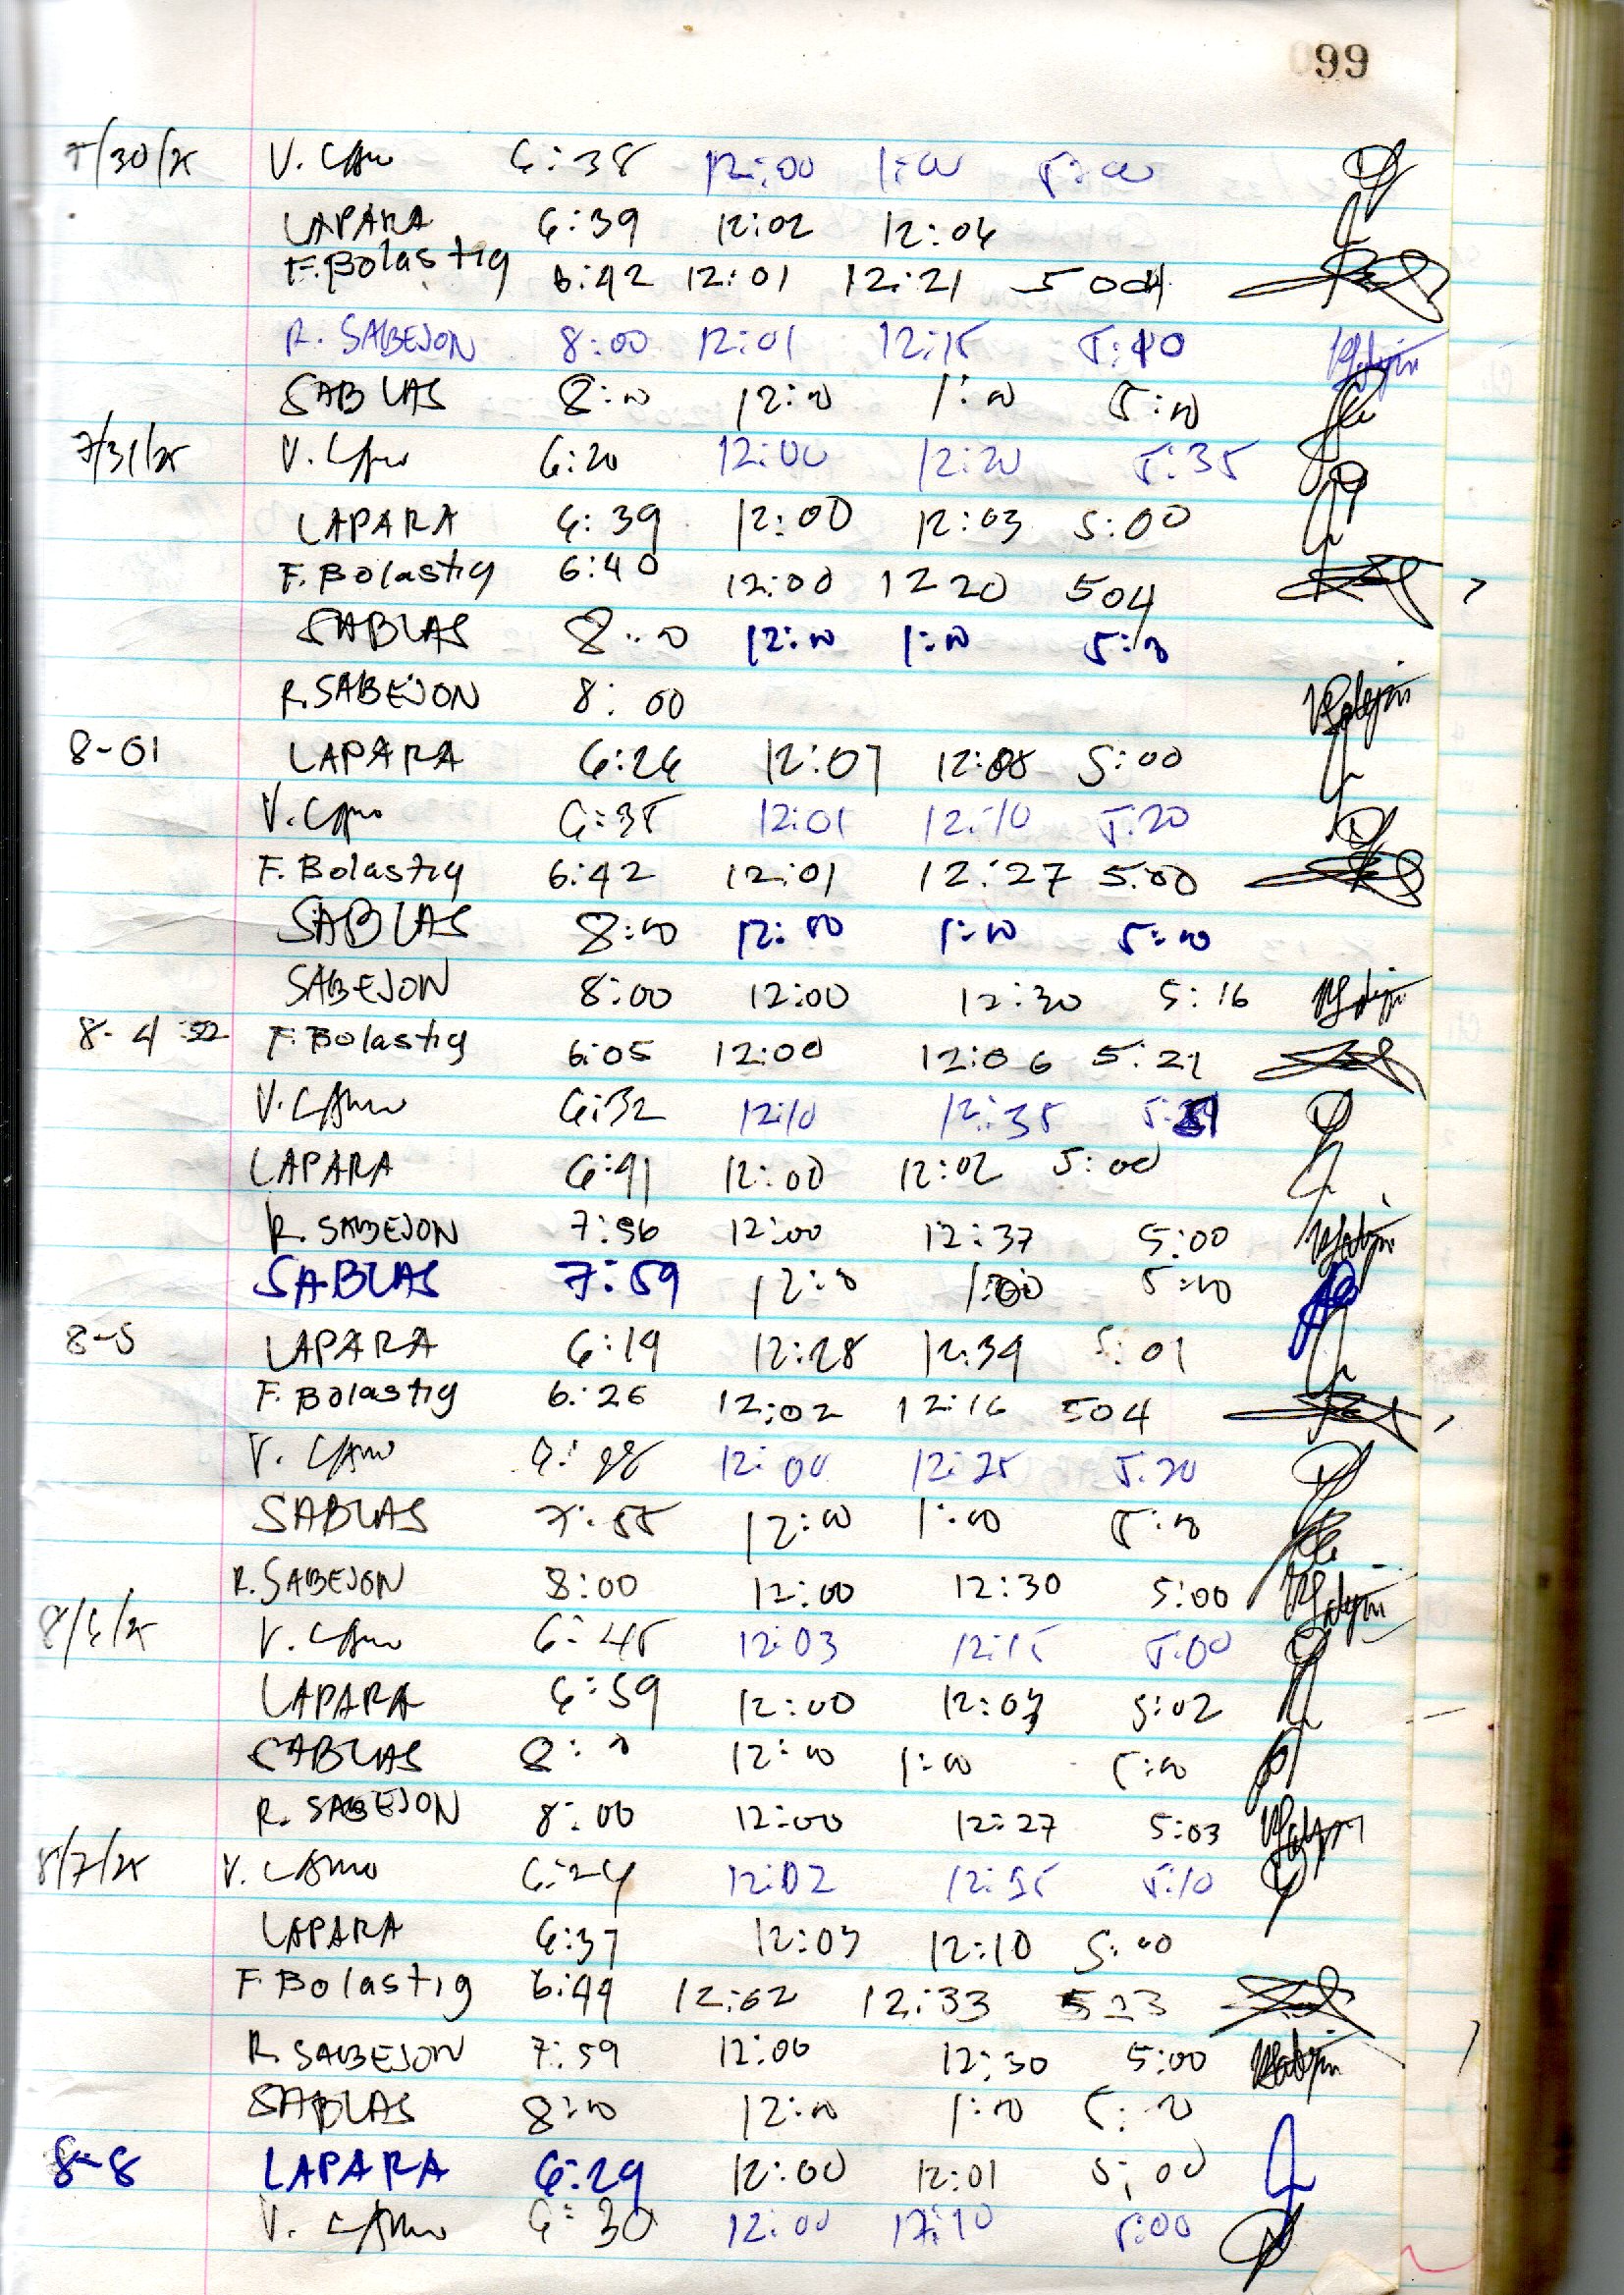 99
7/30/25 V. Caño 6:38 12:00 1:00 5:00
LAPARA 6:39 12:02 12:04
F. Bolastig 6:42 12:01 12:21 5 004
R. SABEJON 8:00 12:01 12:15 5:10
SABLAS 8:00 12:00 1:00 5:00
7/31/25 V. Caño 6:20 12:00 12:20 5:35
LAPARA 6:39 12:00 12:03 5:00
F. Bolastig 6:40 12:00 12 20 504
SABLAS 8:00 12:00 1:00 5:00
R. SABEJON 8:00
8-01 LAPARA 6:26 12:07 12:08 5:00
V. Caño 6:35 12:01 12:10 5:20
F. Bolastig 6:42 12:01 12:27 5:00
SABLAS 8:00 12:00 1:00 5:00
SABEJON 8:00 12:00 12:30 5:16
8-4 F. Bolastig 6:05 12:00 12:06 5:21
V. Caño 6:32 12:10 12:35
LAPARA 6:41 12:00 12:02 5:00
R. SABEJON 7:56 12:00 12:37 5:00
SABLAS 7:59 12:00 1:00 5:00
8-5 LAPARA 6:19 12:28 12:39 5:01
F. Bolastig 6:26 12:02 12:16 504
V. Caño 12:00 12:25 5:20
SABLAS 7:55 12:00 1:00 5:00
R. SABEJON 8:00 12:00 12:30 5:00
8/6/25 V. Caño 6:45 12:03 12:15 5:00
LAPARA 6:59 12:00 5:02
SABLAS 8:00 12:00 1:00 5:00
R. SABEJON 8:00 12:00 12:27 5:03
8/7/25 V. Caño 6:24 12:02 12:35 5:10
LAPARA 6:37 12:09 12:10 5:00
F Bolastig 6:49 12:02 12:33 523
R. SABEJON 7:59 12:00 12:30 5:00
SABLAS 8:00 12:00 1:00
8-8 LAPARA 6:29 12:00 12:01 5:00
V. Caño 6:30 12:00 12:10 5:00